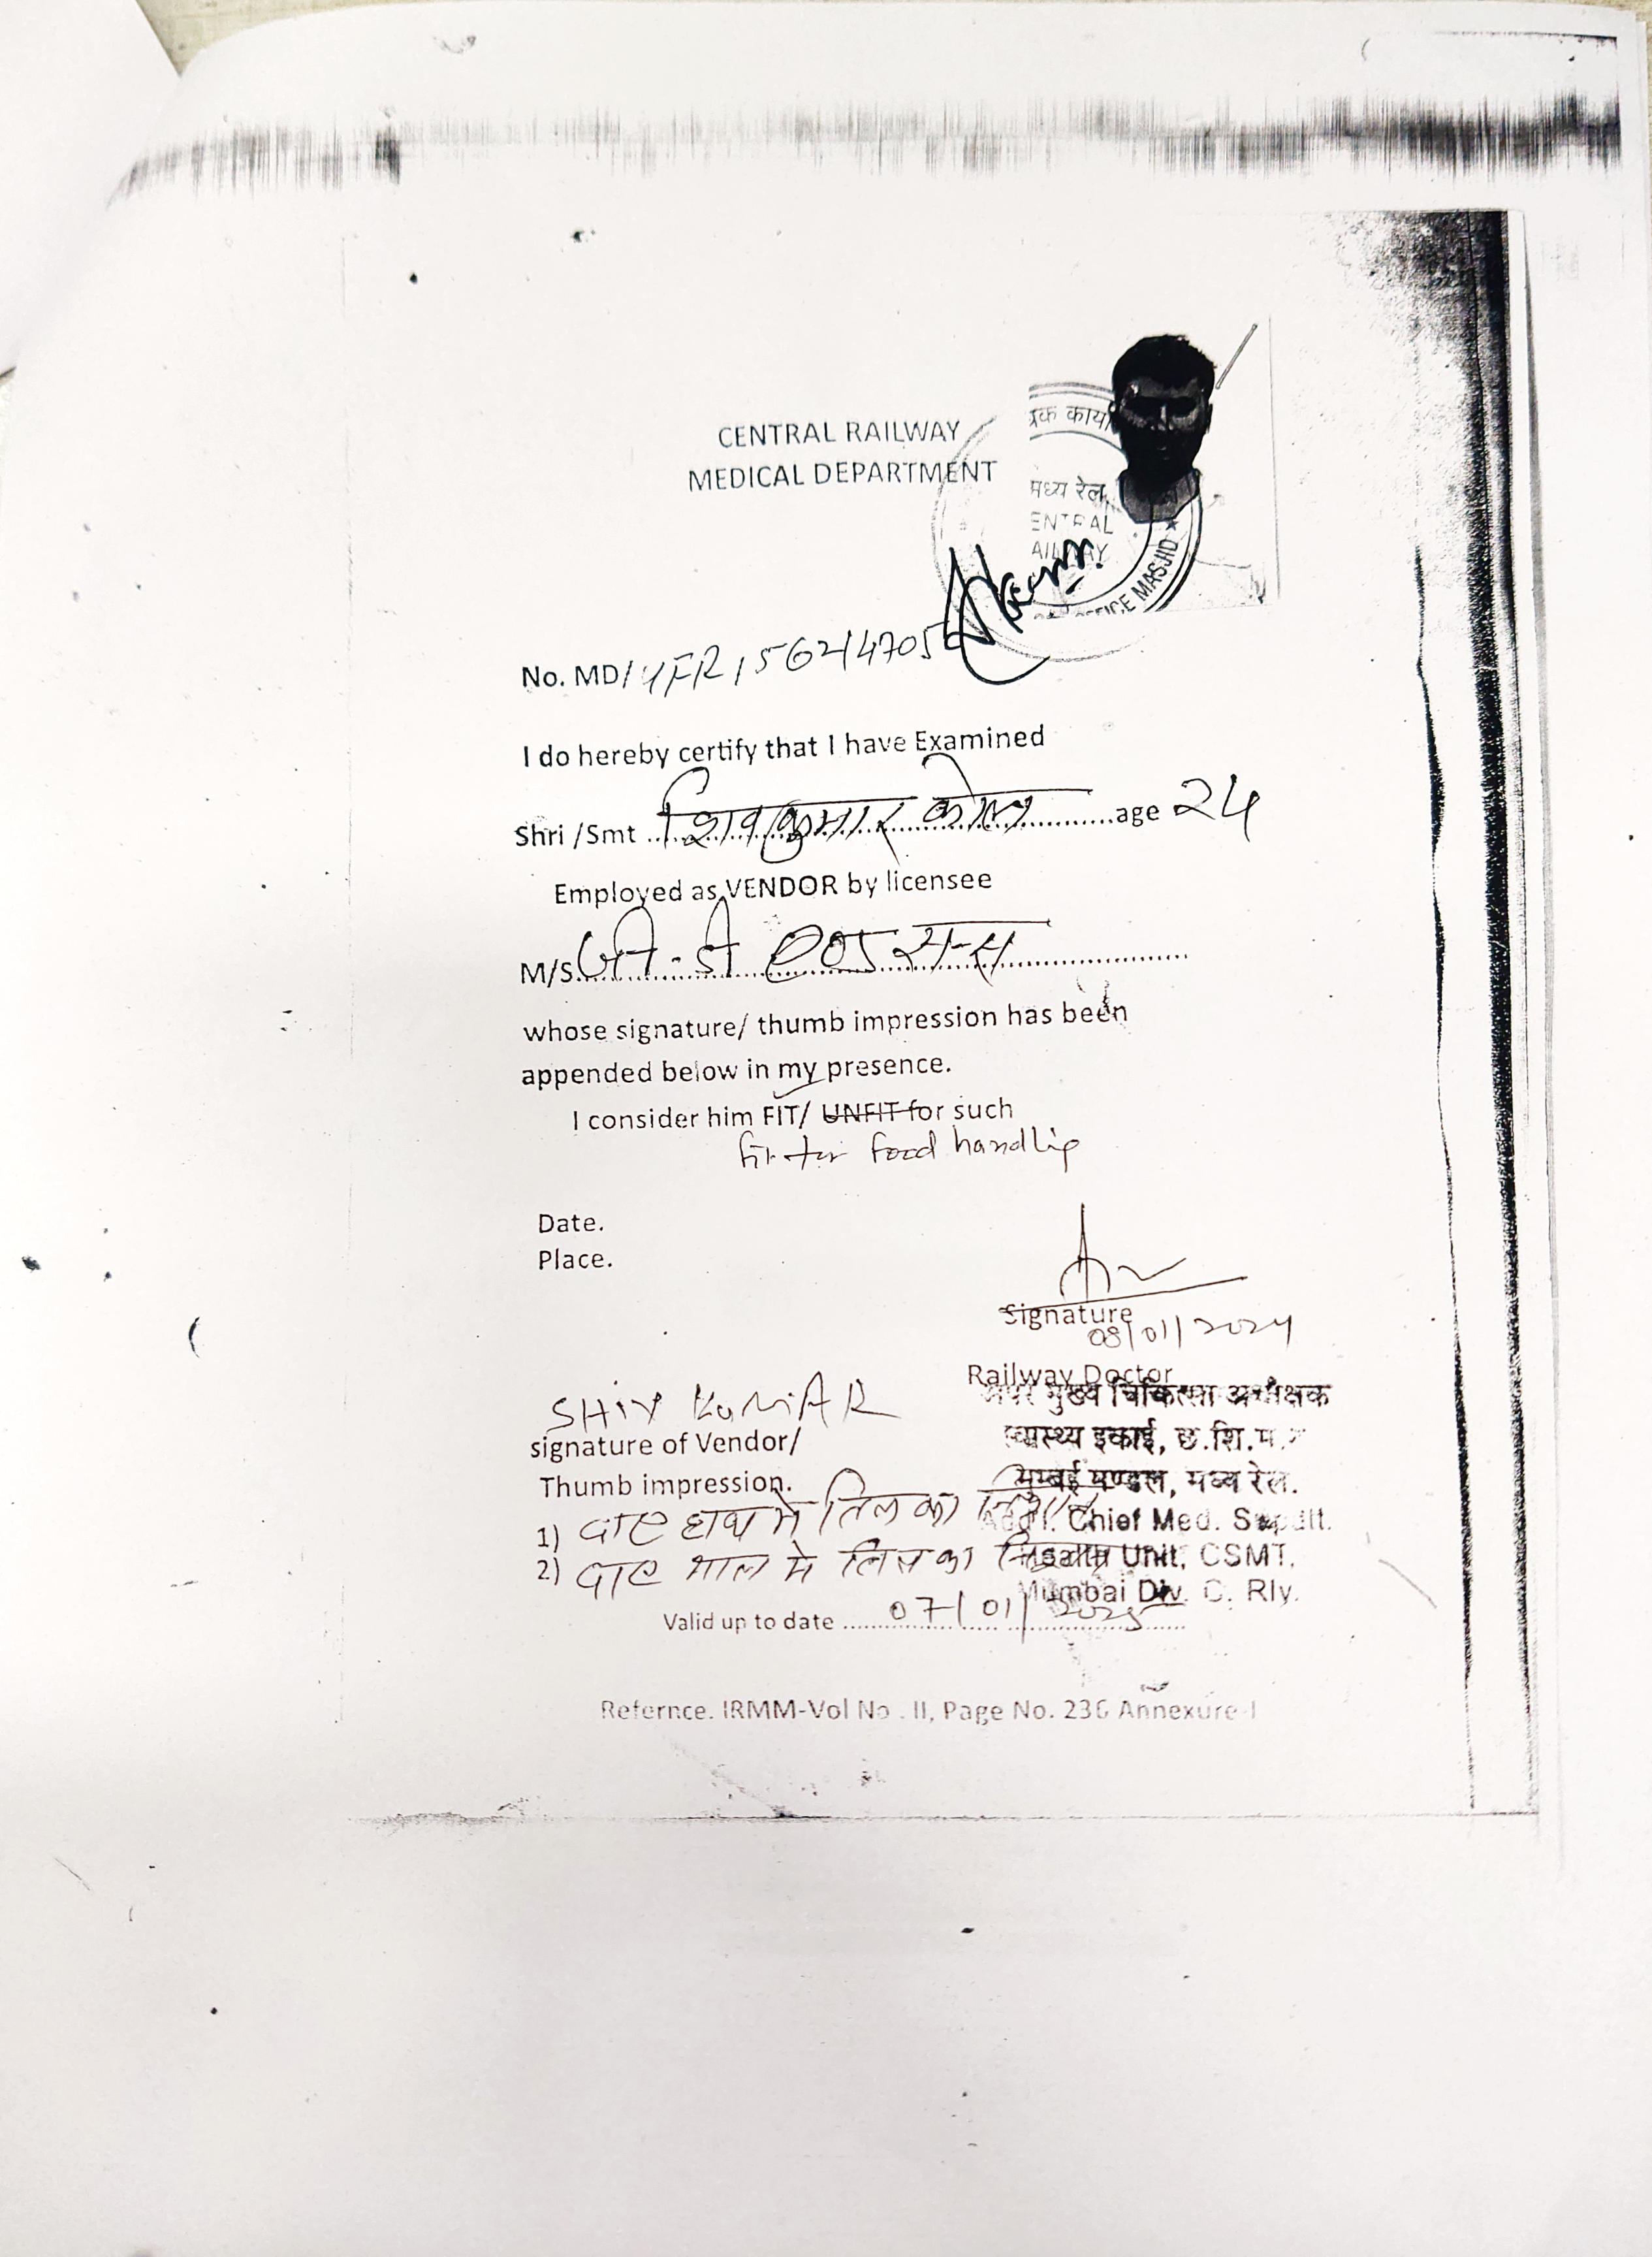 CENTRAL RAILWAY
MEDICAL DEPARTMENT
त्रक कार्या
मध्य रेल
ENTRAL
AILWAY
OFFICE MASJID ★
No. MD/YFR/562/4705
I do hereby certify that I have Examined
Shri /Smt ... शिवकुमार कोल ... age 24
Employed as VENDOR by licensee
M/S. जी.डी एण्ड सन्स
whose signature/ thumb impression has been
appended below in my presence.
I consider him FIT/ UNFIT for such
fit for food handlig
Date.
Place.
Signature
08/01/2024
Railway Doctor
अपर मुख्य चिकित्सा अधीक्षक
स्वास्थ्य इकाई, छ.शि.म.
मुम्बई मण्डल, मध्य रेल.
Addl. Chief Med. Supdt.
Health Unit, CSMT.
Mumbai Div. C. Rly.
SHIV KUMAR
signature of Vendor/
Thumb impression.
1) दाए हाथ मे तिल का
2) दाए गाल मे तिल का
Valid up to date 07/01/2025
Refernce. IRMM-Vol No . II, Page No. 236 Annexure-I